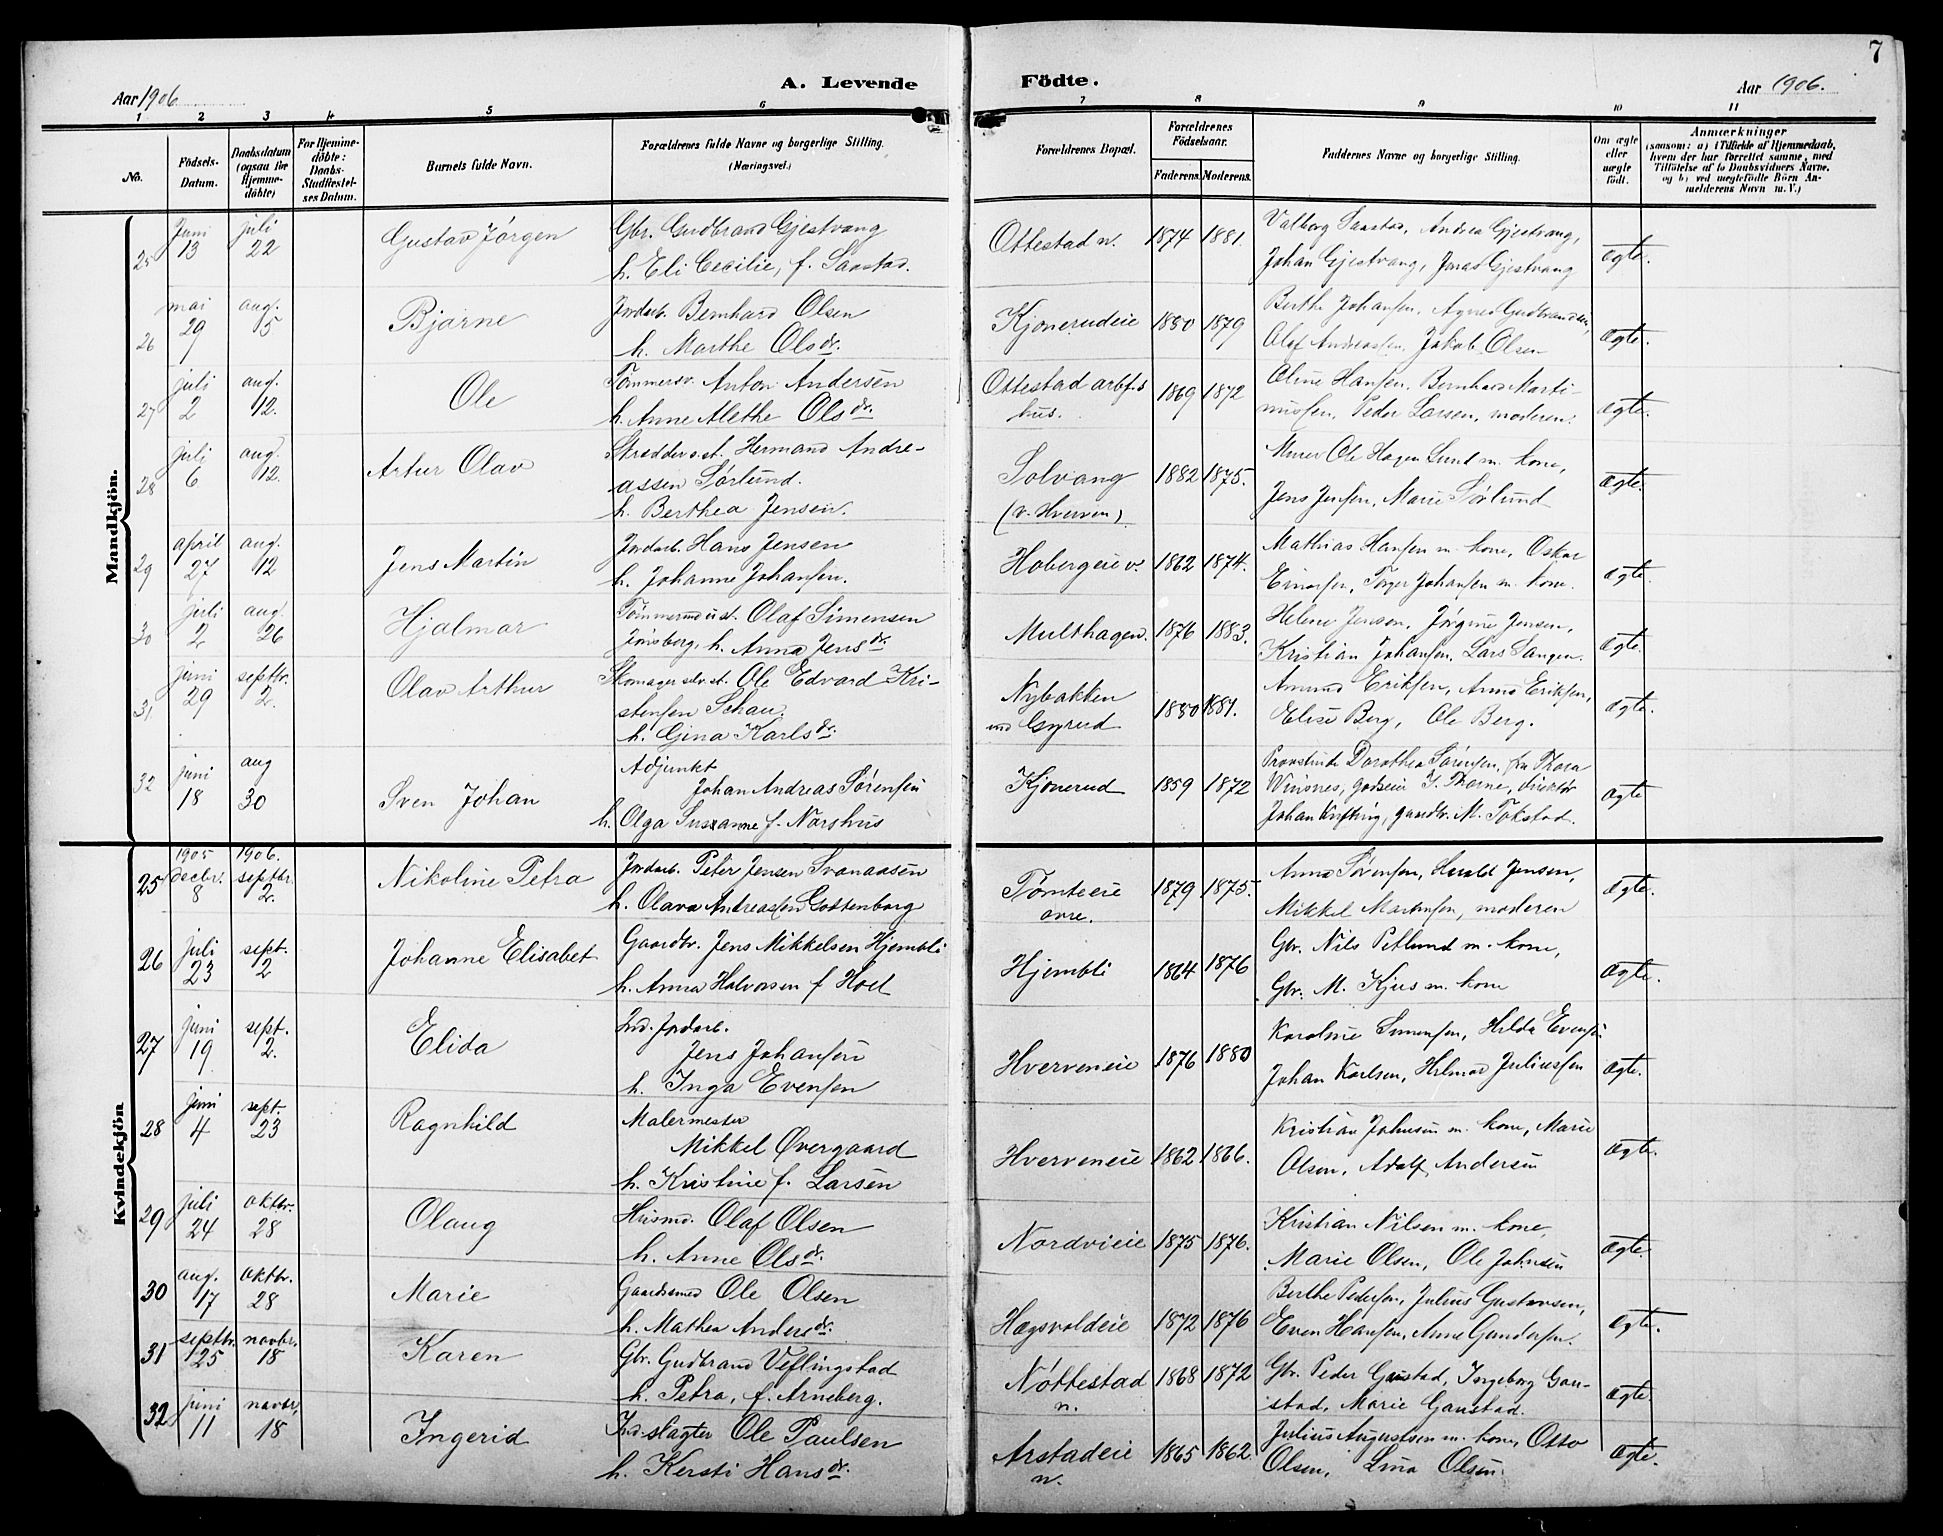 7
Aar 1906
A. Levende Födte.
Aar 1906.
1 2 3 4 5 6 7 8 9 10 11
No.
Födsels-
Datum.
Daabsdatum
(ogsaa for
Hjemme-
döbte)
For Hjemme-
döbte:
Daabs-
Stadfæstel-
ses Datum.
Barnets fulde Navn.
Forældrenes fulde Navne og borgerlige Stilling.
(Næringsvei.)
Forældrenes Bopæl.
Forældrenes
Födselsaar.
Faderens. Moderens.
Faddernes Navne og borgerlige Stilling.
Om ægte
eller
uægte
født.
Anmærkninger
(saasom: a) i Tilfælde af Hjemmedaab,
hvem der har forrettet samme, med
Tilföielse af to Daabsvidners Navne,
og b) ved uægtefödte Börn An-
melderens Navn m. V.)
Mandkjön.
25 juni 13 juli 22 Gustav Jörgen Gbr. Gudbrand Gjestvang
h. Eli Cecilie, f. Saastad.
Ottestad n. 1874 1881. Valborg Saastad, Andrea Gjestvang,
Johan Gjestvang, Jonas Gjestvang
ægte.
26 mai 29 aug. 5 Bjarne Jordarb. Bernhard Olsen
h. Marthe Olsdr.
Kjonerudeie 1880 1879 Berthe Johansen, Agnes Gudbrandsen,
Olaf Andreassen, Jakob Olsen
ægte.
27 juli 2 aug. 12. Ole Tømmersv. Anton Andersen
h. Anne Alethe Olsdr.
Ottestad arbf.s
hus. 1869 1872 Oline Hansen, Bernhard Marti-
niussen, Peder Larsen, moderen.
ægte.
28 juli 6 aug. 12. Artur Olav Skrædder s.st. Hermand Andre-
assen Sørlund.
h. Berthea Jensen.
Solvang
(v. Hverven) 1882 1875. Murer Ole Hagen Lund m. kone,
Jens Jensen, Marie Sørlund
ægte.
29 april 27 aug. 12 Jens Martin Jordarb. Hans Jensen
h. Johanne Johansen.
Hobergeie v. 1862 1874. Mathias Hansen m. kone, Oskar
Einarsen, Torger Johansen m. kone.
ægte.
30 juli 2 aug. 26 Hjalmar Olaf Simensen
Jønsberg, h. Anna Jensdr.
Multhagen. 1876 1883. Helene Jensen, Jørgine Jensen,
Kristian Johansen, Lars Langen.
ægte.
31 juni 29 septbr. 2. Olav Arthur Skomager selvst. Ole Edvard Kri-
stensen Schau.
h. Gina Karlsdr.
Nybakken
und Gyrud 1880 1881. Amund Eriksen, Anna Eriksen,
Elise Berg, Ole Berg.
ægte.
32 juni 18 aug 30 Sven Johan Adjunkt
Johan Andreas Sørensen
h. Olga Susanne f. Norshus
Kjonerud 1859 1872 Provstinde Dorothea Sørensen, fru Thora
Winsnes, godseier I. Thorne, direktør
Johan Kiftting, gaardbr. M. Tokstad.
ægte
Kvindekjön
25 1905 decbr. 8 1906. septbr. 2. Nikoline Petra Jordarb. Peter Jensen Svanaasen
h. Olava Andreassen Gottenborg
Tønteeie
øvre. 1879 1875. Anna Sørensen, Harald Jensen,
Mikkel Martinsen, moderen
ægte.
26 juli 23 sept. 2 Johanne Elisabet Gaardbr. Jens Mikkelsen Hjembli
h. Anna Halvorsen f. Hoel
Hjembli 1864 1876 Gbr. Nils Petlund m. kone,
Gbr. M. Kjus m. kone
ægte.
27 juni 19 sept. 2. Elida Ind. Jordarb.
Jens Johansen
h. Inga Evensen
Hverveneie 1876 1880 Karoline Simensen, Hilda Evensen
Johan Karlsen, Helmod Juliussen
ægte.
28 juni 4 sept. 23 Ragnhild Malermester
Mikkel Øvergaard
h. Kristine f. Larsen
Hverveneie 1862 1866. Kristian Johnsen m. kone, Marie
Olsen, Adolf Andersen
ægte.
29 juli 24 oktbr. 28 Olaug Husmd. Olaf Olsen
h. Anne Olsdr.
Nordvieie 1875 1876. Kristian Nilsen m. kone,
Marie Olsen, Ole Johnsen
ægte.
30 aug. 17 oktbr. 28 Marie Gaardsmed Ole Olsen
h. Mathea Andersdr.
Hagsvoldeie 1872 1876 Berthe Pedersen, Julius Gustavsen,
Even Hansen, Anne Gundersen.
ægte.
31 septbr. 25 novbr. 18 Karen Gbr. Gudbrand Veflingstad
h. Petra, f. Arneberg.
Nøttestad
n. 1868 1872 Gbr. Peder Gaustad, Ingeborg Gau-
stad, Marie Gaustad.
ægte.
32 juni 11 novbr. 18 Ingerid Ind. slagter Ole Paulsen
h. Kersti Hansdr.
Arstadeie
n. 1865 1862. Julius Augustsen m. kone, Otto
Olsen, Lina Olsen.
ægte.